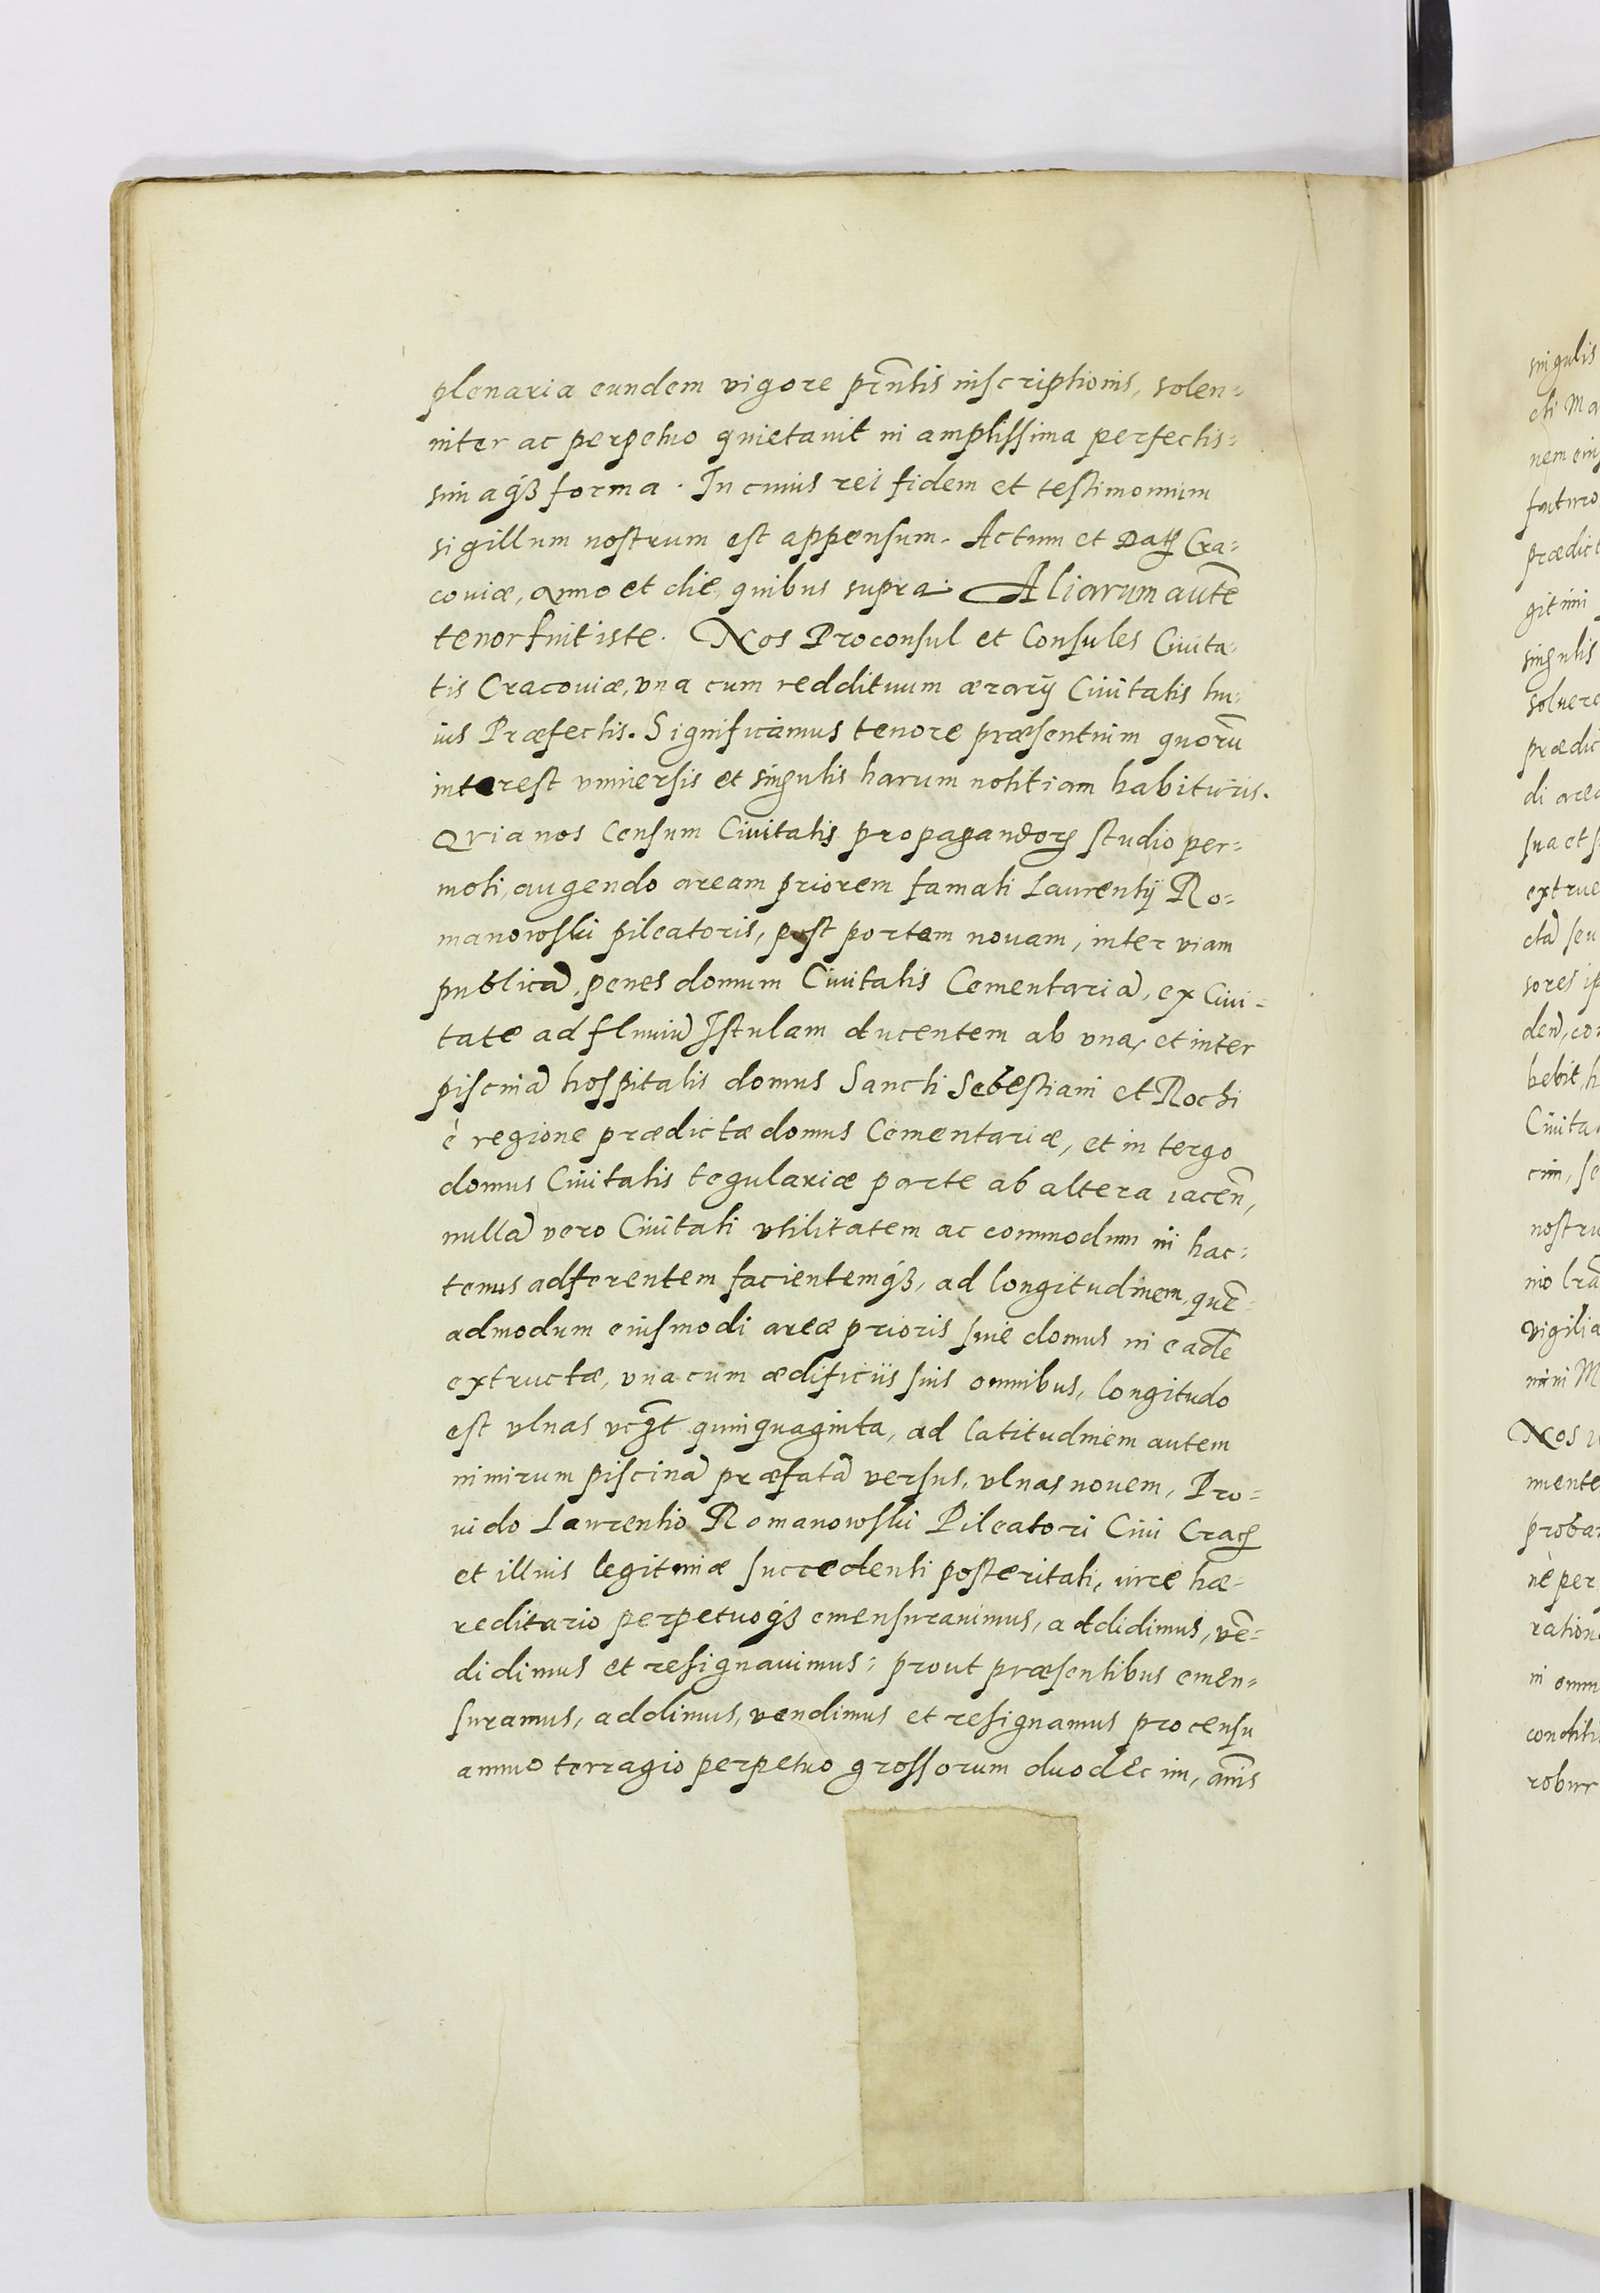 plenaria eundem vigore prñtis inscriptionis, solen=
niter ac perpetuo quietauit in amplissima perfectis=
simaq3 forma. In cuius rei fidem et testimonium
sigillum nostrum est appensum. Actum et Datꝝ Cra=
couiæ, anno et die, quibus supra. Aliarum autē
tenor fuit iste. Nos Proconsul et Consules Ciuita=
tis Cracouiæ, vna cum reddituum ærarij Ciuitatis hu=
ius Præfectis. Significamus tenore præsentium quorū
interest vniuersis et singulis harum notitiam habituris.
Qvia nos Censum Ciuitatis propagandoꝝ studio per=
moti, augendo aream priorem famati Laurentij Ro=
manowski pileatoris, post portam nouam, inter viam
publicā, penes domum Ciuitatis Cementariā, ex Ciui=
tate ad fluuiū Istulam ducentem ab vna, et inter
piscinā hospitalis domus Sancti Sebestiani et Rochi
è regione prædictæ domus Cementariæ, et in tergo
domus Ciuitatis tegulariæ parte ab altera iaceñ,
nullā vero Ciuitati vtilitatem ac commodum in hac=
tenus adferentem facientemq3, ad longitudinem, quē=
admodum eiusmodi areæ prioris siue domus in eadē
extructæ, vna cum ædificiis suis omnibus, longitudo
est vlnas vcȝt quinquaginta, ad latitudinem autem
nimirum piscinā præfatā versus, vlnas nouem, Pro=
uido Laurentio Romanowski Pileatori Ciui Cracꝝ
et illius legitimæ succedenti posteritati, iure hæ=
reditario perpetuoq3 emensurauimus, addidimus, vē=
didimus et resignauimus; prout præsentibus emen=
suramus, addimus, vendimus et resignamus pro censu
annuo terragio perpetuo grossorum duodecim, añis
singulis
cti Ma
nem eius
futuro
prædict
gitimi
singulis
soluere
prædic
di area
sua et s
extrue
ctā seu
sores ip
dend, con
bebit, h
Ciuita
cim, se
nostru
nio lrā
vigilia
mini M
Nos v
mente
probar
nè per
ration
in omn
conditi
robur